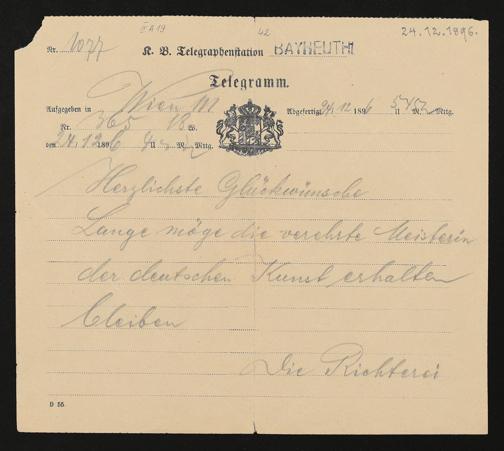 II A 19
42
24.12.1896.
Nr. 1077
K. B. Telegraphenstation BAYREUTH
Telegramm.
Aufgegeben in Wien M
Abgefertigt 24/12 1896 5 Uhr M. Mttg.
Nr. 365 18 W.
von 24.12 1896 Uhr M. Mttg.
Herzlichste Glückwünsche
Lange möge die verehrte Meisterin
der deutschen Kunst erhalten
bleiben
Die Richterei
D 55.